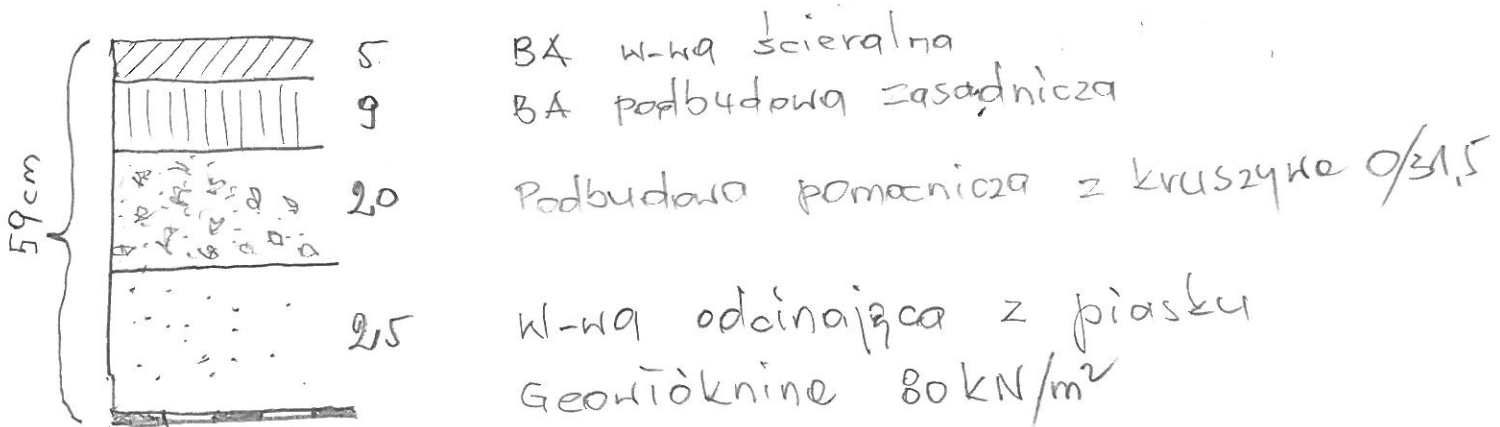 5 BA w-wa ścieralna
9 BA podbudowa zasadnicza
20 Podbudowa pomocnicza z kruszywa 0/31,5
25 W-wa odcinająca z piasku
Geowłóknina 80 kN/m²
59cm